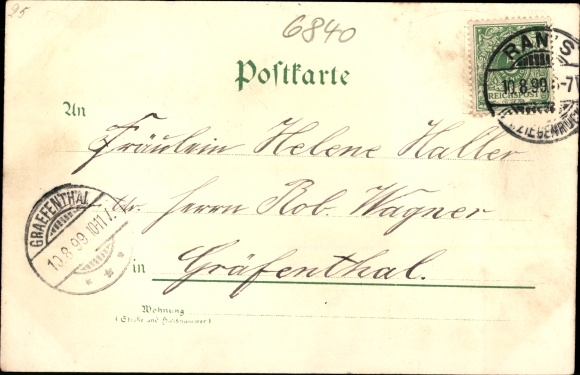 25
6840
Postkarte
REICHSPOST
RANIS
10.8.99. 6-7
ZIEGENRÜCK
An
Fräulein Helene Haller
Herrn Rob. Wagner
GRAEFENTHAL
10.8.99.10-11
in
Gräfenthal.
Wohnung
(Straße und Hausnummer)